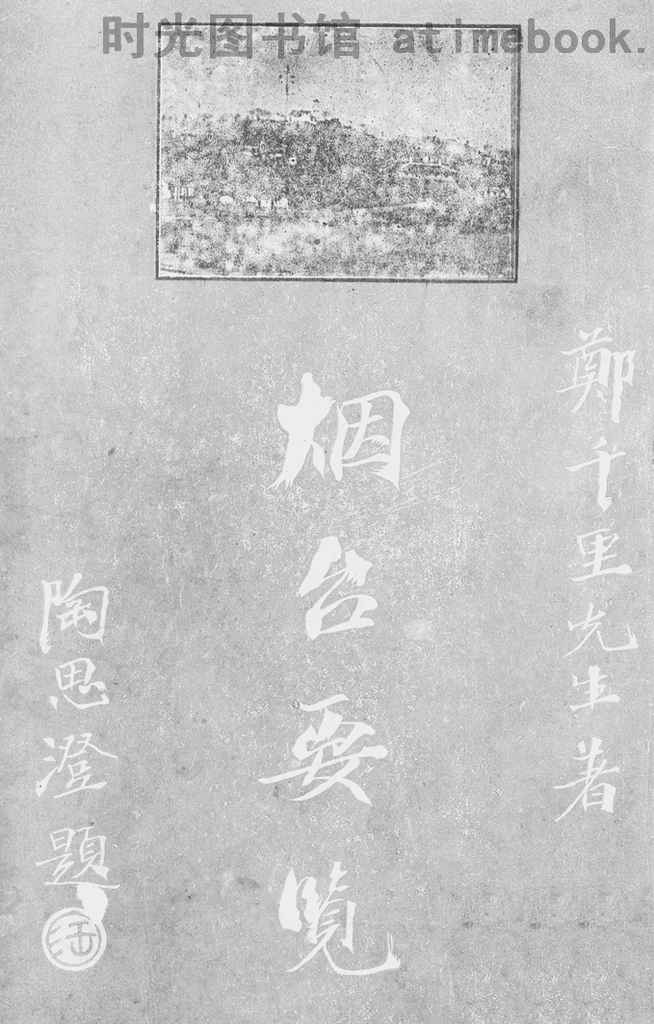 时光图书馆 atimebook.
鄭千里先生著
烟台要覽
陶思澄題